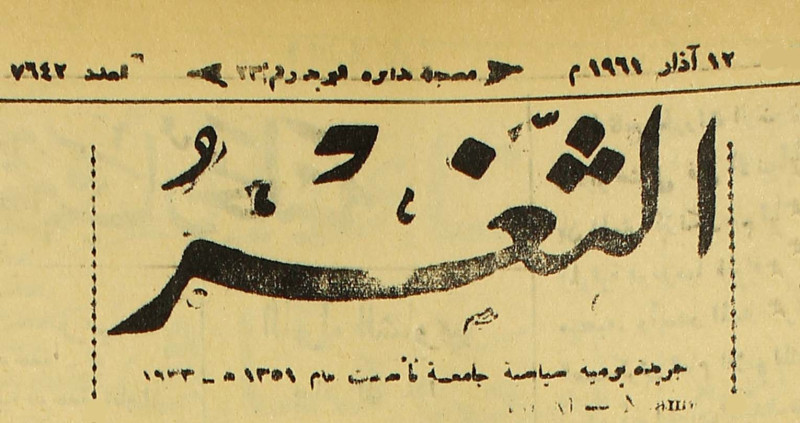 ١٢ آذار ١٩٦١ م مسجلة بدائرة البريد رقم ٢٣ العدد ٧٦٤٢
الثَّغْرُ
جريدة يومية سياسية جامعة تأسست عام ١٣٥١ ه‍ – ١٩٣٣